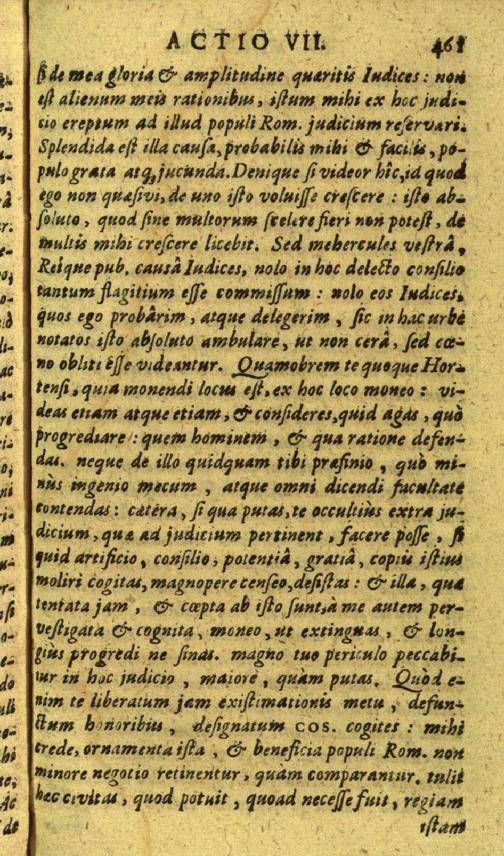 ACTIO VII. 461
ſi de mea gloria & amplitudine quæritis Iudices: non
eſt alienum meis rationibus, iſtum mihi ex hoc judi-
cio ereptum ad illud populi Rom. judicium reſervari.
Splendida eſt illa cauſa, probabilis mihi & facilis, po-
pulo grata atq; jucunda. Denique ſi videor hîc, id quod
ego non quæſivi, de uno iſto voluiſſe creſcere: iſto ab-
ſoluto, quod ſine multorum ſcelere fieri non poteſt, de
multis mihi creſcere licebit. Sed mehercules veſtrâ,
Reique pub. causâ Iudices, nolo in hoc delecto conſilio
tantum flagitium eſſe commiſſum: nolo eos Iudices,
quos ego probârim, atque delegerim, ſic in hac urbe
notatos iſto abſoluto ambulare, ut non cerâ, ſed cœ-
no obliti eſſe videantur. Quamobrem te quoque Hor-
tenſi, quia monendi locus eſt, ex hoc loco moneo: vi-
deas etiam atque etiam, & conſideres, quid agas, quò
progrediare: quem hominem, & qua ratione defen-
das. neque de illo quidquam tibi præfinio, quò mi-
nùs ingenio mecum, atque omni dicendi facultate
contendas: cætera, ſi qua putas, te occultius extra ju-
dicium, quæ ad judicium pertinent, facere poſſe, ſi
quid artificio, conſilio, potentiâ, gratiâ, copiis iſtius
moliri cogitas, magnopere cenſeo, deſiſtas: & illa, quæ
tentata jam, & cœpta ab iſto ſunt, à me autem per-
veſtigata & cognita, moneo, ut extinguas, & lon-
giùs progredi ne ſinas. magno tuo periculo peccabi-
tur in hoc judicio, maiore, quàm putas. Quòd e-
nim te liberatum jam exiſtimationis metu, defun-
ctum honoribus, deſignatum COS. cogites: mihi
crede, ornamenta iſta, & beneficia populi Rom. non
minore negotio retinentur, quàm comparantur. tulit
hæc civitas, quod potuit, quoad neceſſe fuit, regiam
iſtam